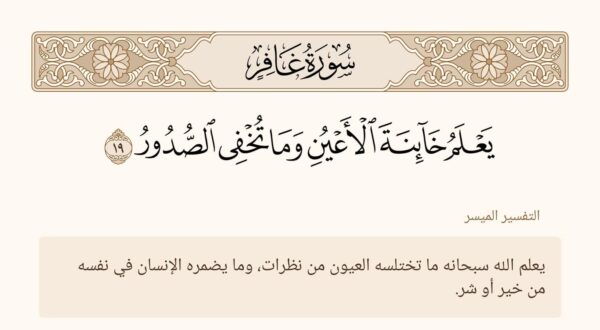 سُورَةُ غَافِرٍ
يَعْلَمُ خَآئِنَةَ ٱلْأَعْيُنِ وَمَا تُخْفِى ٱلصُّدُورُ ١٩
التفسير الميسر
يعلم الله سبحانه ما تختلسه العيون من نظرات، وما يضمره الإنسان في نفسه
من خير أو شر.